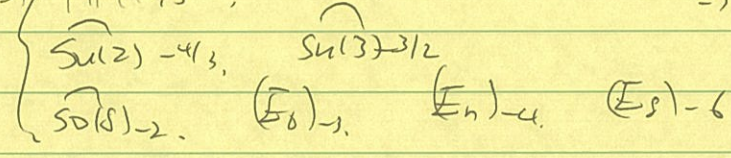 su(2)-4/3, su(3)-3/2
so(8)-2. (E6)-3. (E7)-4. (E8)-6